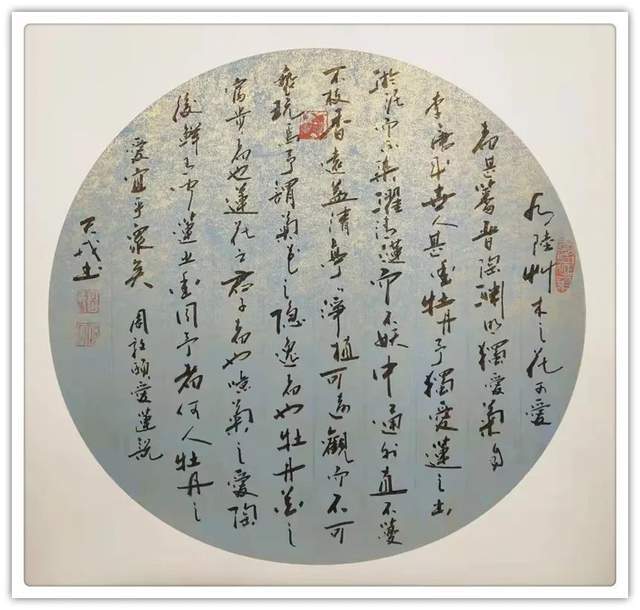 水陸艸木之花可愛
者甚蕃晉陶渊明獨愛菊自
李唐来世人甚愛牡丹予獨愛蓮之出
淤泥而不染濯清漣而不妖中通外直不蔓
不枝香遠益清亭〻淨植可遠觀而不可
亵玩焉予謂菊花之隐逸者也牡丹花之
富贵者也蓮花之君子者也噫菊之愛陶
後鲜有闻蓮之愛同予者何人牡丹之
愛宜乎衆矣 周敦颐愛蓮説
天成书